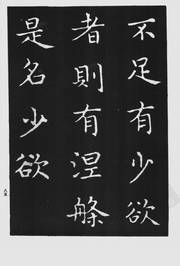 不足有少欲
者則有涅槃
是名少欲